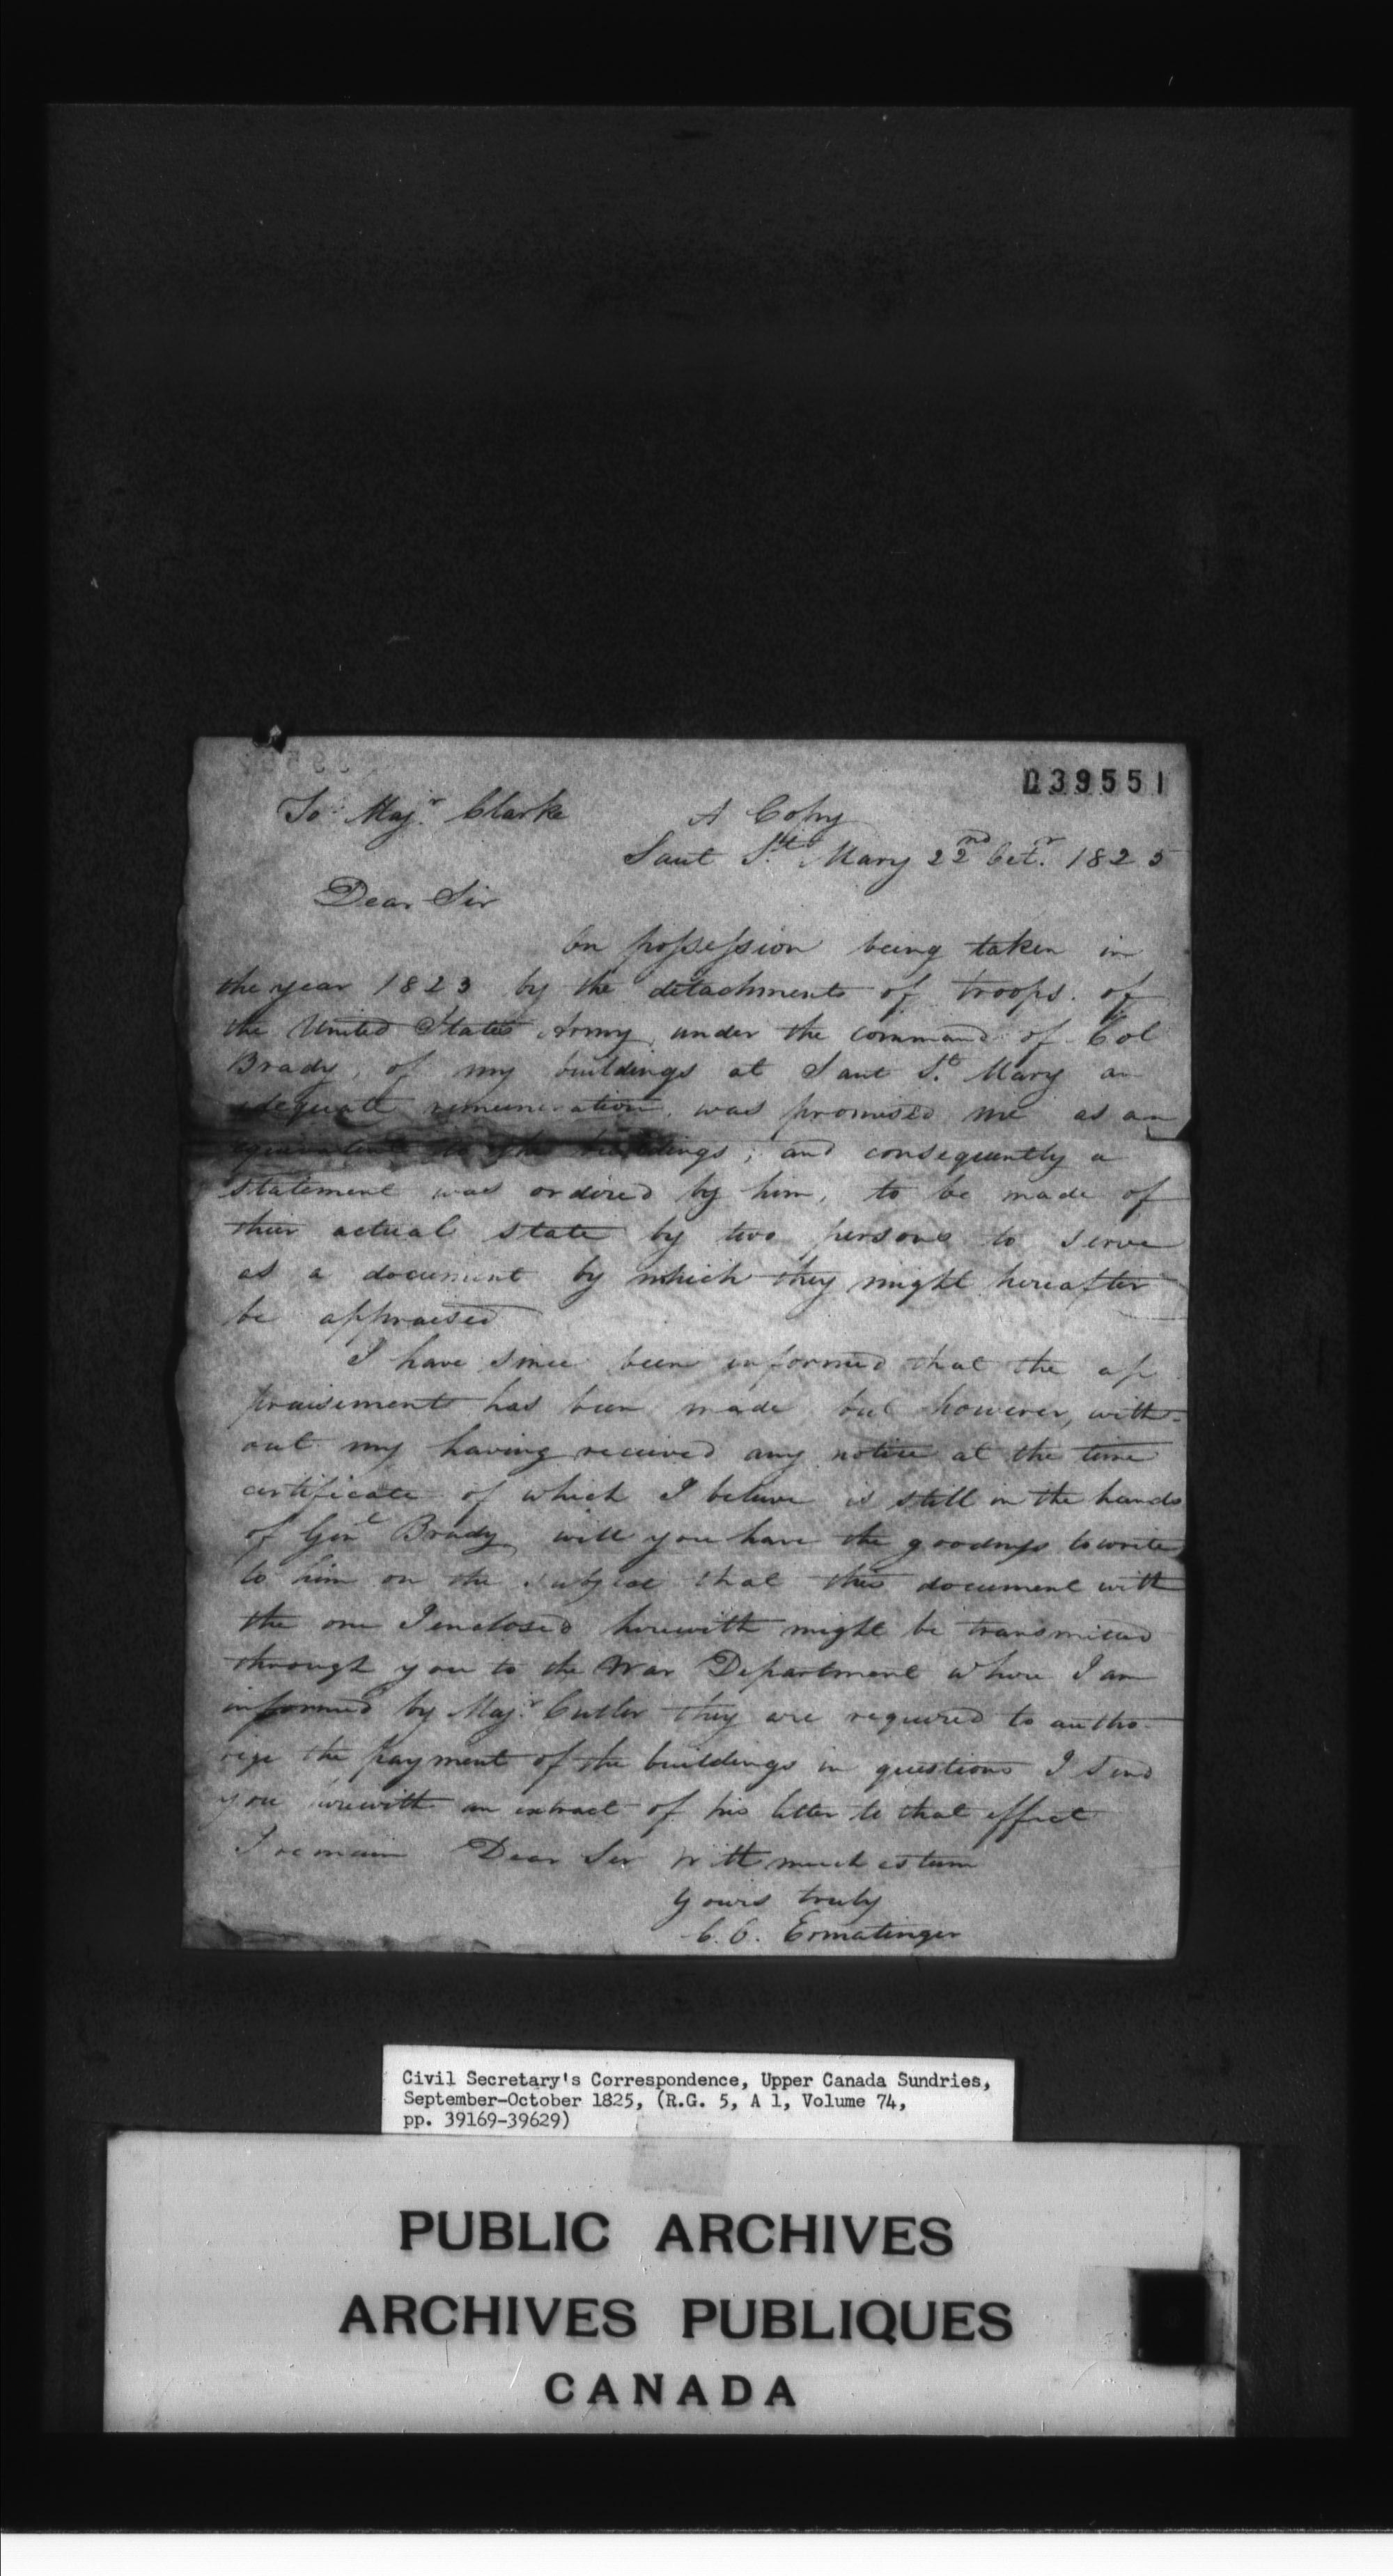 039551
To Majr. Clarke
A Copy
Saut St. Mary 22nd Octr. 1825
Dear Sir
On possession being taken in
the year 1823 by the detachments of troops of
the United States Army under the command of Col
Brady, of my buildings at Saut St. Mary an
adequate remuneration was promised me as an
equivalent to the buildings, and consequently a
statement was ordered by him, to be made of
their actual state by two persons to serve
as a document by which they might hereafter
be appraised
I have since been informed that the ap
praisement has been made but however, with-
out my having received any notice at the time
certificate of which I believe is still in the hands
of Genl Brady will you have the goodness to write
to him on the subject that this document with
the one I enclosed herewith might be transmitted
through you to the War Department where I am
informed by Majr. Cutler they are required to autho-
rize the payment of the buildings in questions I send
you herewith an extract of his letter to that effect
I remain Dear Sir With much esteem
Yours truly
C. O. Ermatinger
Civil Secretary's Correspondence, Upper Canada Sundries,
September-October 1825, (R.G. 5, A 1, Volume 74,
pp. 39169-39629)
PUBLIC ARCHIVES
ARCHIVES PUBLIQUES
CANADA